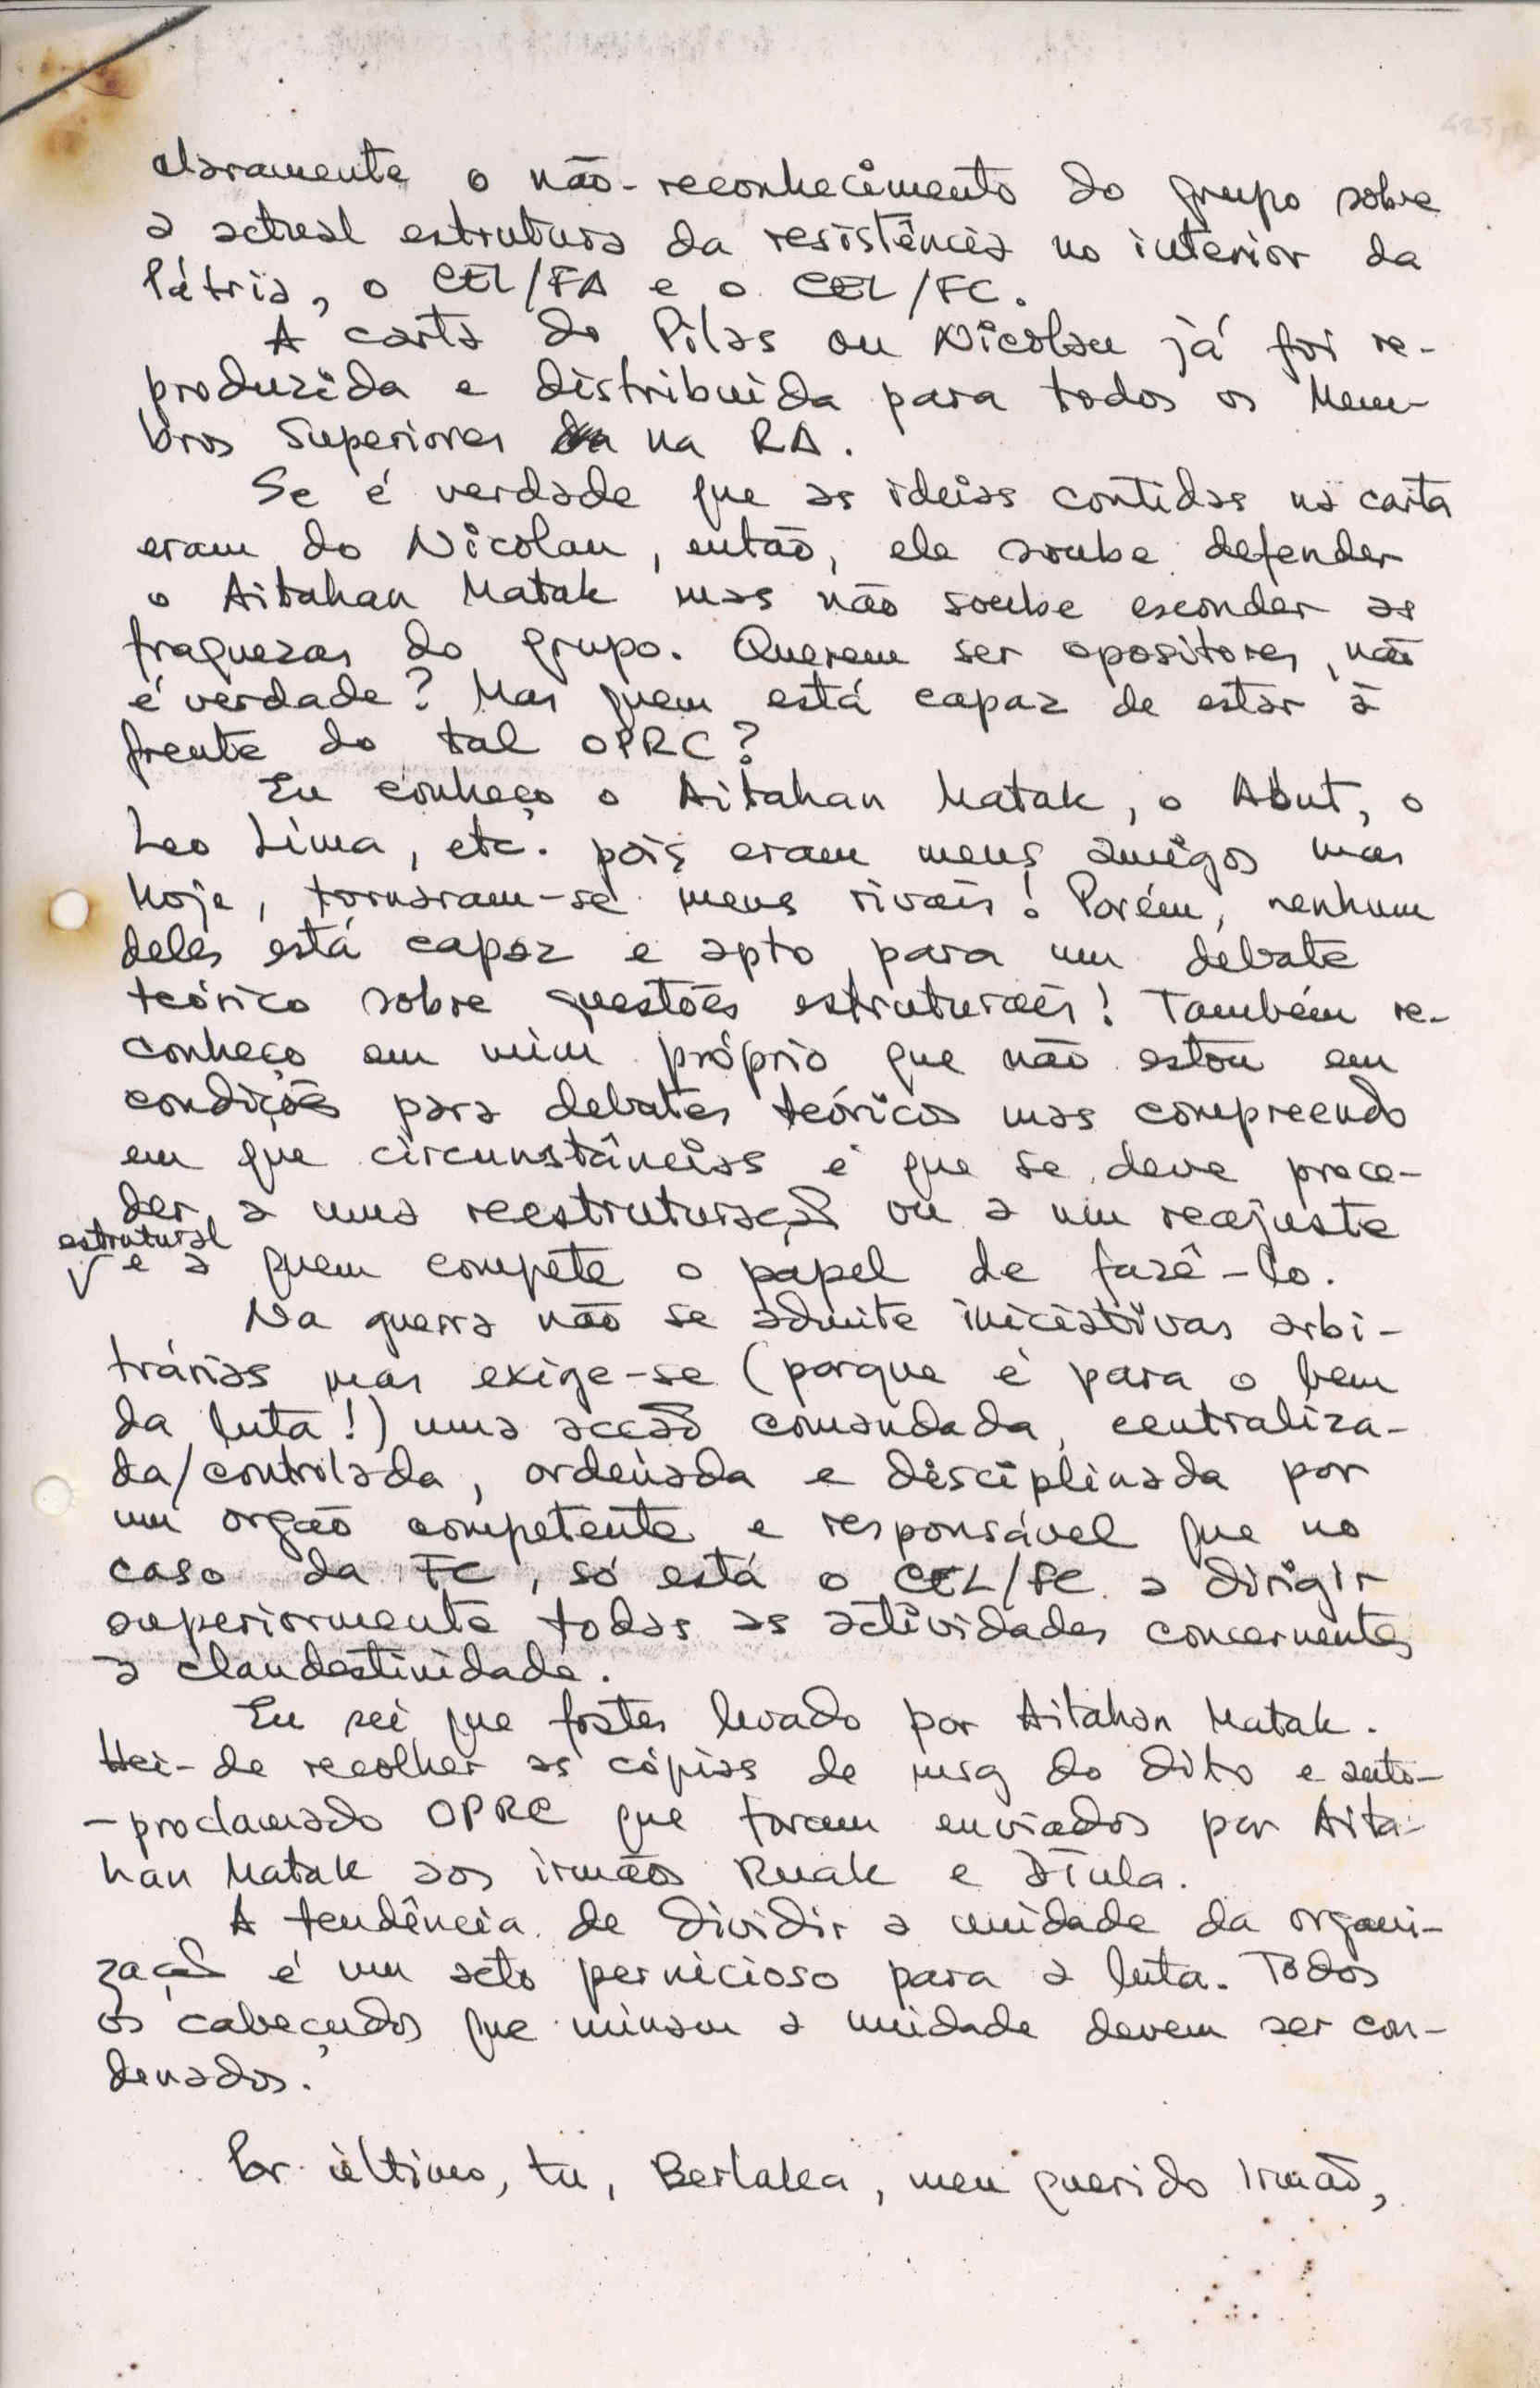 claramente o não-reconhecimento do grupo sobre
a actual estrutura da resistência no interior da
Pátria, o CEL/FA e o CEL/FC.
A carta do Pilas ou Nicolau já foi re-
produzida e distribuida para todos os Mem-
bros Superiores na RA.
Se é verdade que as ideias contidas na carta
eram do Nicolau, então, ele soube defender
o Aitahan Matak mas não soube esconder as
fraquezas do grupo. Querem ser opositores, não
é verdade? Mas quem está capaz de estar à
frente do tal OPRC?
Eu conheço o Aitahan Matak, o Abut, o
Leo Lima, etc. pois eram meus amigos mas
hoje, tornaram-se meus rivais! Porém, nenhum
deles está capaz e apto para um debate
teórico sobre questões estruturais! Também re-
conheço em mim próprio que não estou em
condições para debates teóricos mas compreendo
em que circunstâncias é que se deve proce-
der a uma reestruturação ou a um reajuste
estrutural
e a quem compete o papel de fazê-lo.
Na guerra não se admite iniciativas arbi-
trárias mas exige-se (porque é para o bem
da luta!) uma acção comandada, centraliza-
da/controlada, ordenada e disciplinada por
um orgão competente e responsável que no
caso da FC, só está o CEL/FC a dirigir
superiormente todas as actividades concernentes
à clandestinidade.
Eu sei que fostes levado por Aitahan Matak.
Hei-de recolher as cópias de msg do dito e auto-
-proclamado OPRC que foram enviados por Aita-
han Matak aos irmãos Ruak e Díula.
A tendência de dividir a unidade da organi-
zação é um acto pernicioso para a luta. Todos
os cabeçudos que minam a unidade devem ser con-
denados.
Por último, tu, Berlakea, meu querido Irmão,